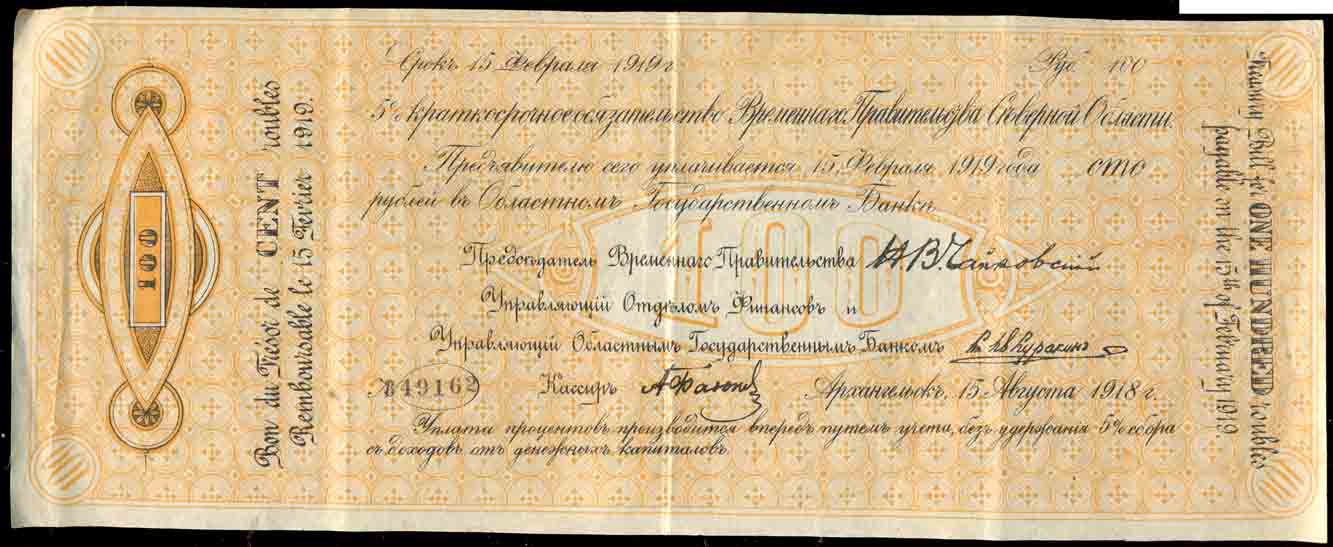 100
Bon du Trésor de CENT roubles
Remboursable le 15 Fevrier 1919.
Срокъ 15 Февраля 1919 г.
Руб. 100
5% краткосрочное обязательство Временнаго Правительства Сѣверной Области.
Предъявителю сего уплачивается 15 Февраля 1919 года сто
рублей въ Областномъ Государственномъ Банкѣ
100
Предсѣдатель Временнаго Правительства Н.В. Чайковский
Управляющій Отдѣломъ Финансовъ и
Управляющій Областнымъ Государственнымъ Банкомъ Куракинъ
49162 Кассиръ Архангельскъ, 15 Августа 1918 г.
Уплата процентовъ производится впередъ путемъ учета, безъ удержанія 5% сбора
съ доходовъ отъ денежныхъ капиталовъ.
Treasury Bill for ONE HUNDRED roubles
payable on the 15th of February 1919